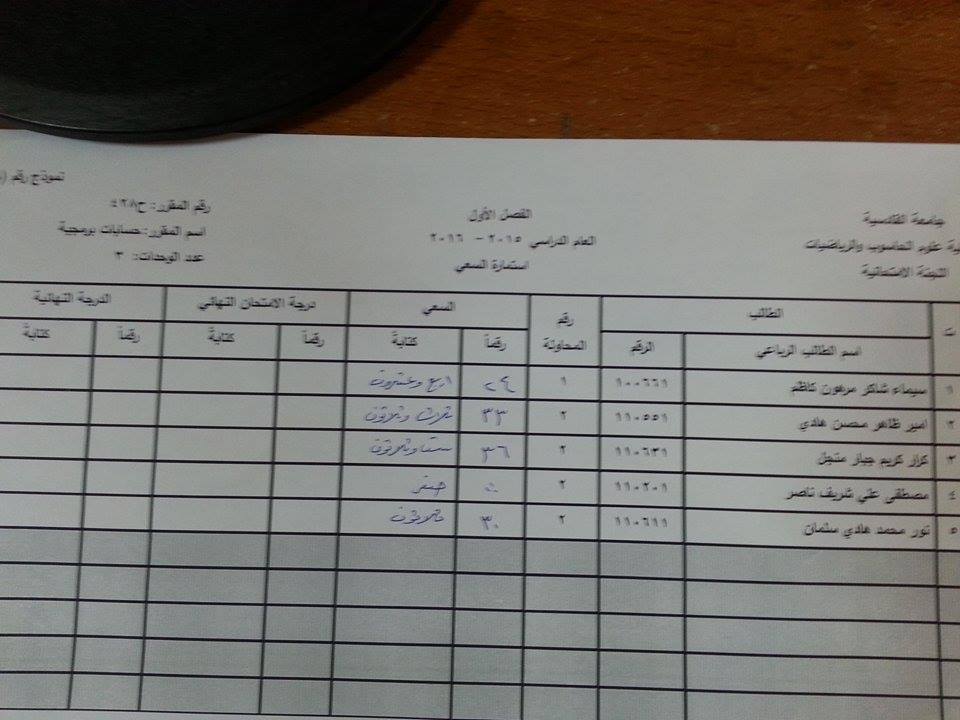 جامعة القادسية
كلية علوم الحاسوب والرياضيات
اللجنة الامتحانية
الفصل الأول
العام الدراسي ٢٠١٥ - ٢٠١٦
استمارة السعي
نموذج رقم (
رقم المقرر: ح٤٢٨
اسم المقرر: حسابات برمجية
عدد الوحدات: ٣
ت الطالب رقم المحاولة السعي درجة الامتحان النهائي الدرجة النهائية
اسم الطالب الرباعي الرقم رقماً كتابةً رقماً كتابةً رقماً كتابةً
١ سيماء شاكر مرهون كاظم ١٠٠٦٦١ ١ ٢٤ اربع وعشرون
٢ امير ظاهر محسن هادي ١١٠٥٥١ ٢ ٣٣ ثلاث وثلاثون
٣ كرار كريم جبار منجل ١١٠٦٣١ ٢ ٣٦ ست وثلاثون
٤ مصطفى علي شريف ناصر ١١٠٢٠١ ٢ ٠ صفر
٥ نور محمد هادي سلمان ١١٠٦١١ ٢ ٣٠ ثلاثون